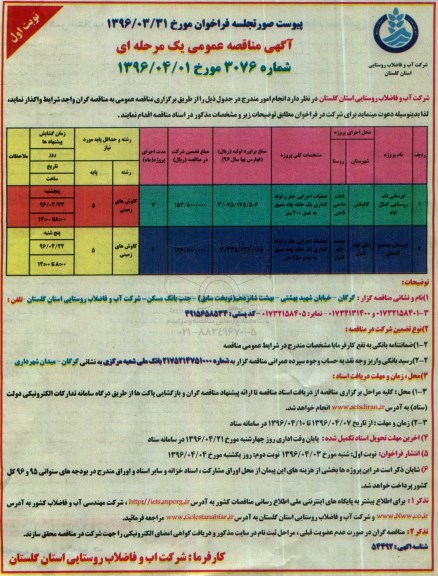 نوبت اول
پیوست صورتجلسه فراخوان مورخ ۱۳۹۶/۰۳/۳۱
آگهی مناقصه عمومی یک مرحله ای
شماره ۳۰۷۶ مورخ ۱۳۹۶/۰۴/۰۱
شرکت آب و فاضلاب روستایی
استان گلستان
شرکت آب و فاضلاب روستایی استان گلستان در نظر دارد انجام امور مندرج در جدول ذیل را از طریق برگزاری مناقصه عمومی به مناقصه گران واجد شرایط واگذار نماید،
لذا بدینوسیله دعوت مینماید برای شرکت در فراخوان مطابق توضیحات زیر و مشخصات مذکور در اسناد مناقصه اقدام نمایند.
ردیف نام پروژه محل اجرای پروژه شهرستان روستا مشخصات کلی پروژه مبلغ برآورد اولیه (ریال) (فهارس بها سال ۹۶) مبلغ تضمین شرکت در مناقصه (ریال) مدت اجرای پروژه (ماه) رشته و حداقل پایه مورد نیاز رشته پایه زمان گشایش پیشنهاد ها روز تاریخ ساعت ملاحظات
۱ کاوش های زمینی ۵ پنجشنبه ۹۶/۰۴/۲۲
۲ کاوش های زمینی ۵ پنج شنبه ۹۶/۰۴/۲۲
توضیحات :
۱) نام و نشانی مناقصه گزار : گرگان – خیابان شهید بهشتی – بهشت شانزدهم – جنب بانک مسکن – شرکت آب و فاضلاب روستایی استان گلستان – تلفن :
کد پستی : ۴۹۱۵۶۵۸۵۳۴
۲) نوع تضمین شرکت در مناقصه :
۲-۱) ضمانتنامه بانکی به نفع کارفرما با مشخصات مندرج در شرایط عمومی مناقصه
۲-۲) رسید بانکی واریز وجه نقد به حساب وجوه سپرده عمرانی مناقصه گزار به شماره ۲۱۷۵۲۱۴۷۵۱۰۰۰ بانک ملی شعبه مرکزی به نشانی گرگان – میدان شهرداری
۳) محل ، زمان و مهلت دریافت اسناد :
۳-۱) محل : کلیه مراحل برگزاری مناقصه از دریافت اسناد مناقصه تا ارائه پیشنهاد مناقصه گران و بازگشایی پاکت ها از طریق درگاه سامانه تدارکات الکترونیکی دولت
(ستاد) به آدرس www.setadiran.ir انجام خواهد شد.
۳-۲) زمان و مهلت : از تاریخ ۱۳۹۶/۰۴/۰۷ تا ۱۳۹۶/۰۴/۱۰ در سامانه ستاد
۴) آخرین مهلت تحویل اسناد تکمیل شده : پایان وقت اداری روز چهارشنبه مورخ ۱۳۹۶/۰۴/۲۱ در سامانه ستاد
۵) انتشار فراخوان: نوبت اول: شنبه مورخ ۱۳۹۶/۰۴/۰۳ نوبت دوم: روز یکشنبه مورخ ۱۳۹۶/۰۴/۰۴
۶) شایان ذکر است در این پروژه ها بخشی از هزینه های این پیمان از محل اوراق مشارکت ، اسناد خزانه و سایر اسناد و اوراق مندرج در بودجه های سنواتی ۹۵ و ۹۶ کل
کشور پرداخت خواهد شد.
تذکر ۱ : برای اطلاع بیشتر به پایگاه های اینترنتی ملی اطلاع رسانی مناقصات کشور به آدرس http://iets.mporg.ir ، شرکت مهندسی آب و فاضلاب کشور به آدرس
www.Nww.co.ir و شرکت آب و فاضلاب روستایی استان گلستان به آدرس www.Golestanabfar.ir مراجعه فرمائید.
تذکر ۲ : مناقصه گران در صورت عدم عضویت قبلی ، مراحل ثبت نام در سایت مذکور و دریافت گواهی امضای الکترونیکی را جهت شرکت در مناقصه محقق سازند.
شناسه آگهی: ۵۴۴۹۲
کارفرما : شرکت آب و فاضلاب روستایی استان گلستان